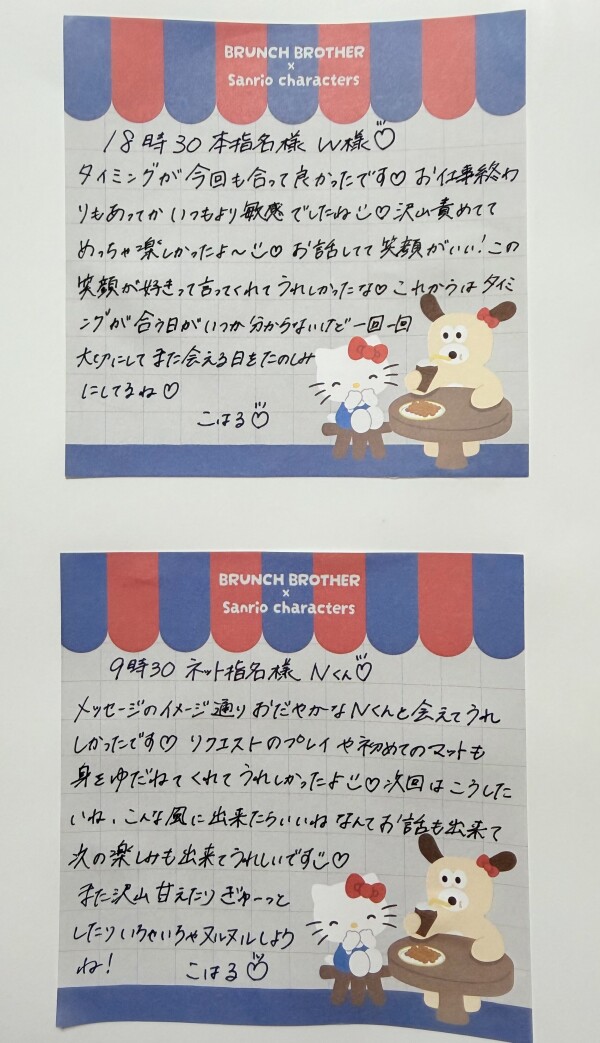 BRUNCH BROTHER
×
Sanrio characters
18時30 本指名様 W様♡
タイミングが今回も合って良かったです♡ お仕事終わ
りもあってか いつもより敏感でしたね☺♡ 沢山責めてて
めっちゃ楽しかったよ〜☺♡ お話してて笑顔がいい!この
笑顔が好きって言ってくれてうれしかったな♡ これからはタイミ
ングが合う日がいつか分からないけど一回一回
大切にしてまた会える日をたのしみ
にしてるね♡
こはる♡
BRUNCH BROTHER
×
Sanrio characters
9時30 ネット指名様 Nくん♡
メッセージのイメージ通りおだやかなNくんと会えてうれ
しかったです♡ リクエストのプレイや初めてのマットも
身をゆだねてくれてうれしかったよ☺♡ 次回はこうした
いね、こんな風に出来たらいいねなんてお話も出来て
次の楽しみも出来てうれしいです☺♡
また沢山甘えたりぎゅーっと
したりいちゃいちゃヌルヌルしよう
ね!
こはる♡